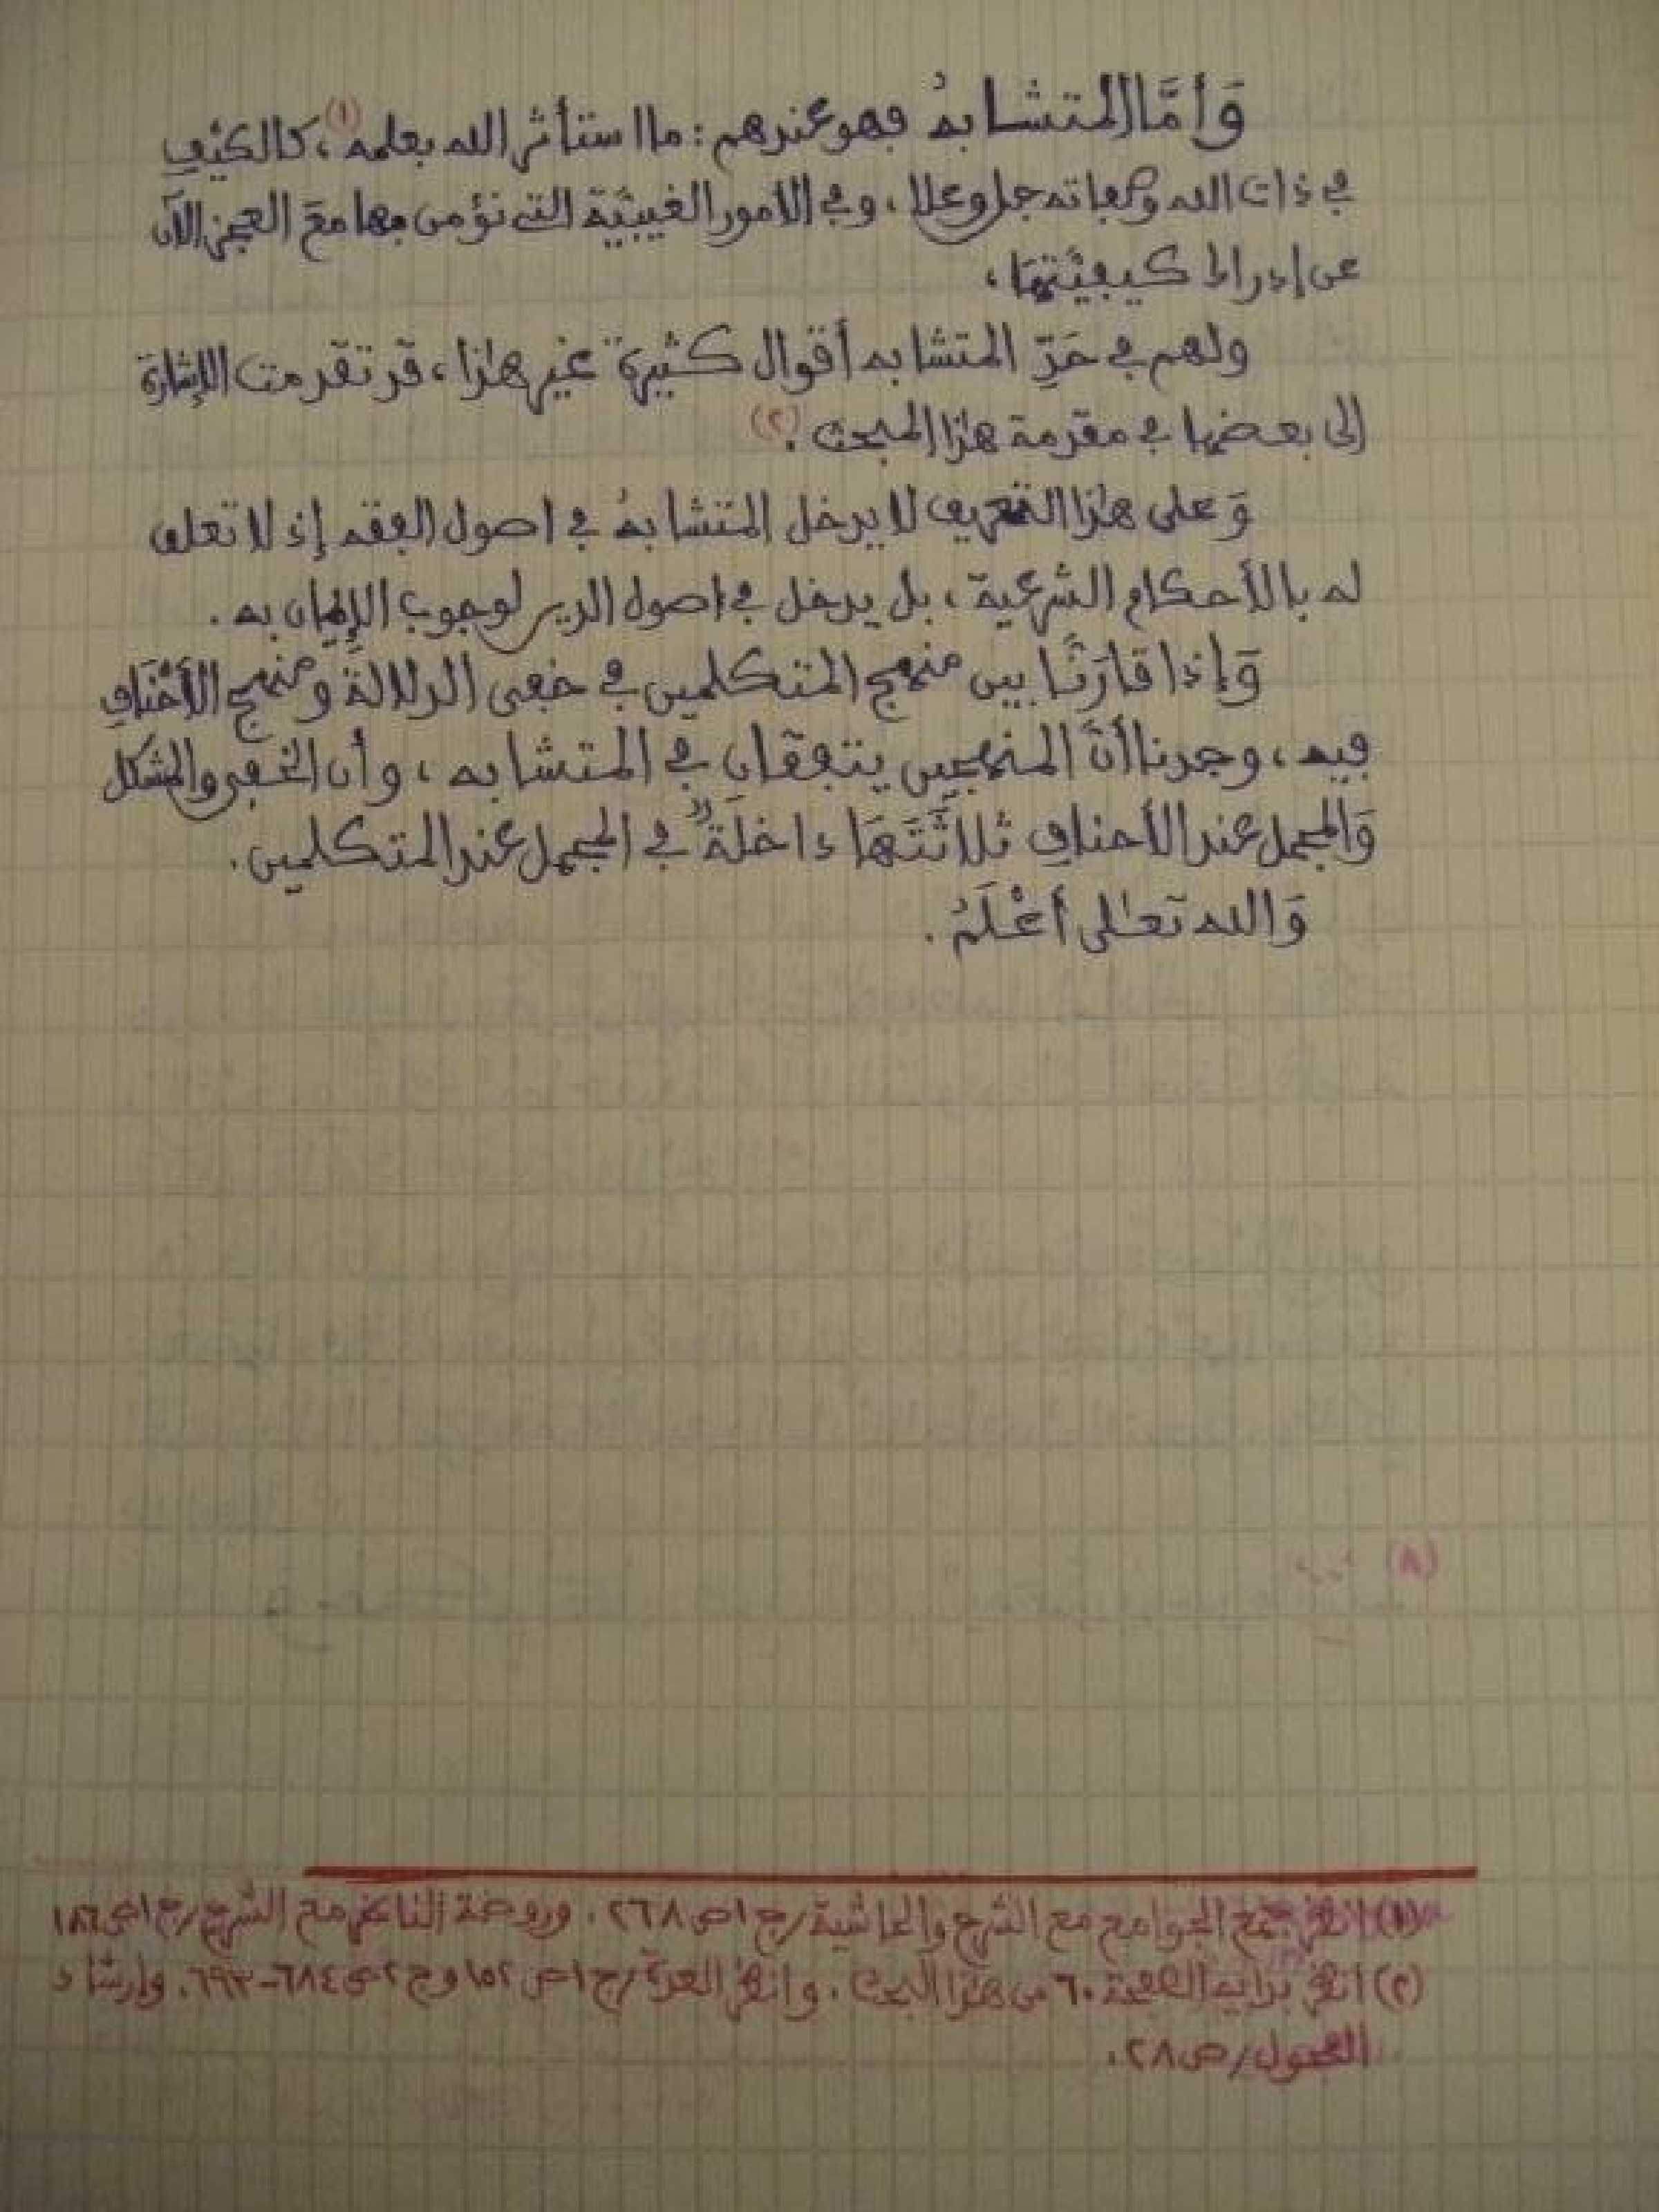 وَأَمَّا المتشابهُ فهو عندهم: ما استأثر الله بعلمه(١)، كالكَيْفِ
في ذات الله وصفاته جل وعلا، وفي الأمور الغيبيَّة التي نؤمن بها مع العجز الآن
عن إدراك كيفيَّتِهَا.
ولهم في حَدِّ المتشابه أقوال كثيرة غير هذا، قد تقدمت الإشارة
إلى بعضها في مقدمة هذا المبحث.(٢)
وَعلى هذا التعريف لا يدخل المتشابهُ في اصول الفقه إذ لا تعلق
له بالأحكام الشرعية، بل يدخل في اصول الدين لوجوب الإيمان به.
وَإذا قارَنَّا بين منهج المتكلمين في خفي الدلالة ومنهج الأحْنَافِ
فيه، وجدنا أنَّ المنهجين يتفقان في المتشابه، وأن الخفي والمشكل
وَالمجمل عند الأحناف ثلاثَتَهَا داخلَةٌ في المجمل عند المتكلمين.
وَالله تعالى أعْلَمُ.
(٨)
(١) انظر جمع الجوامع مع الشرح والحاشية/ج١ص٢٦٨. وروضة الناظر مع الشرح/ج١ص١٨٦
(٢) انظر بداية الصفحة ٦٠ من هذا البحث. وانظر العدة/ج١ص١٥٢ وج٢ص٦٨٤-٦٩٣. وإرشاد
الفحول/ص٢٨.